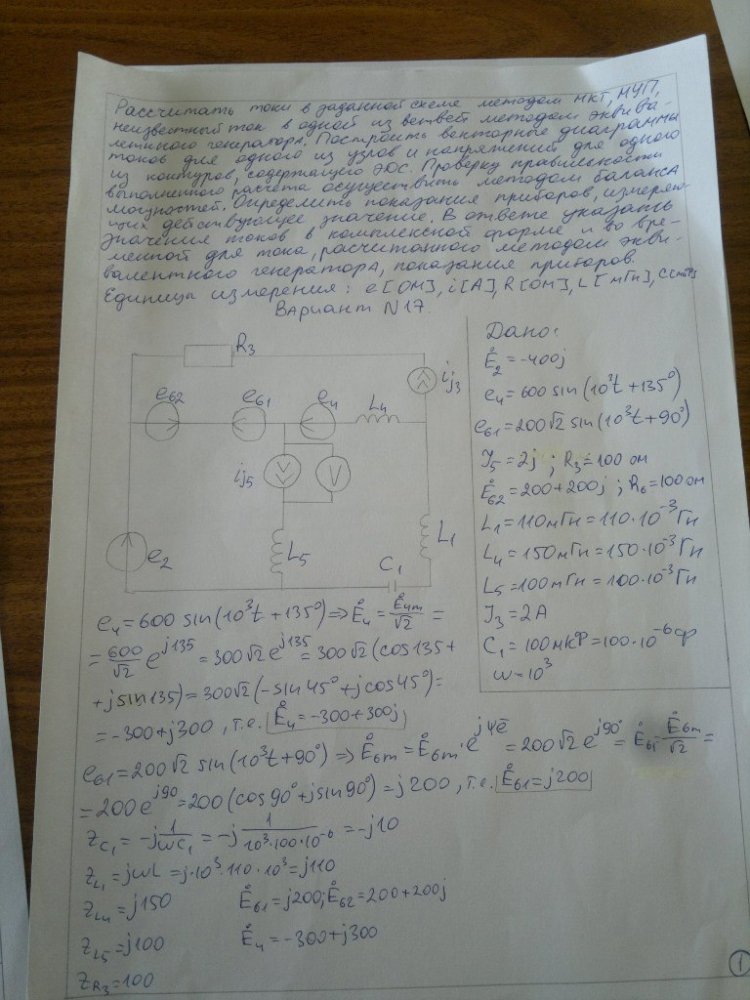 Рассчитать токи в заданной схеме методом МКТ, МУП,
неизвестный ток в одной из ветвей методом эквива-
лентного генератора. Построить векторные диаграммы
токов для одного из узлов и напряжений для одного
из контуров, содержащего ЭДС. Проверку правильности
выполненного расчета осуществить методом баланса
мощностей. Определить показания приборов, измеряю-
щих действующее значение. В ответе указать
значения токов в комплексной форме и во вре-
менной для тока, рассчитанного методом экви-
валентного генератора, показания приборов.
Единицы измерения: e[ОМ], i[А], R[ОМ], L[мГн], C[мкФ]
Вариант N17.
R3
ij3
e62
e61
e4
L4
ij5
V
e2
L5
C1
L1
Дано:
E̊2 = -400j
e4 = 600 sin(10³t + 135°)
e61 = 200√2 sin(10³t + 90°)
J5 = 2j ; R3 = 100 ом
E̊62 = 200 + 200j ; R6 = 100 ом
L1 = 110 мГн = 110·10⁻³ Гн
L4 = 150 мГн = 150·10⁻³ Гн
L5 = 100 мГн = 100·10⁻³ Гн
J3 = 2А
C1 = 100 мкФ = 100·10⁻⁶ ф
w = 10³
e4 = 600 sin(10³t + 135°) ⇒ E̊4 = E̊4m/√2 =
= 600/√2 e^j135 = 300√2 e^j135 = 300√2 (cos135 +
+ j sin135) = 300√2 (-sin45° + j cos45°) =
= -300 + j300, т.е. E̊4 = -300 + 300j
e61 = 200√2 sin(10³t + 90°) ⇒ E̊6m = E̊6m · e^jφe = 200√2 e^j90° = E̊61 = E̊6m/√2 =
= 200 e^j90 = 200 (cos90° + j sin90°) = j200, т.е. E̊61 = j200
zC1 = -j 1/wC1 = -j 1/10³·100·10⁻⁶ = -j10
zL1 = jwL = j·10³·110·10³ = j110
zL4 = j150 E̊61 = j200; E̊62 = 200 + 200j
zL5 = j100 E̊4 = -300 + j300
zR3 = 100
1